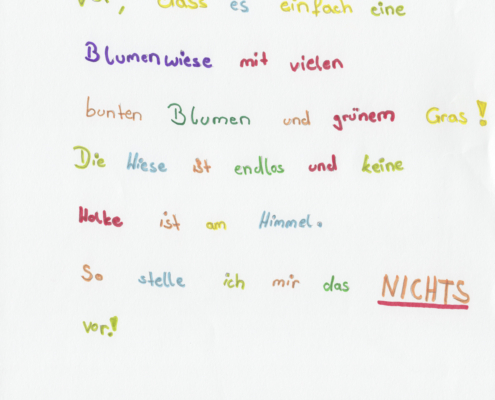 vor, dass es einfach eine
Blumenwiese mit vielen
bunten Blumen und grünem Gras!
Die Wiese ist endlos und keine
Wolke ist am Himmel.
So stelle ich mir das NICHTS
vor!